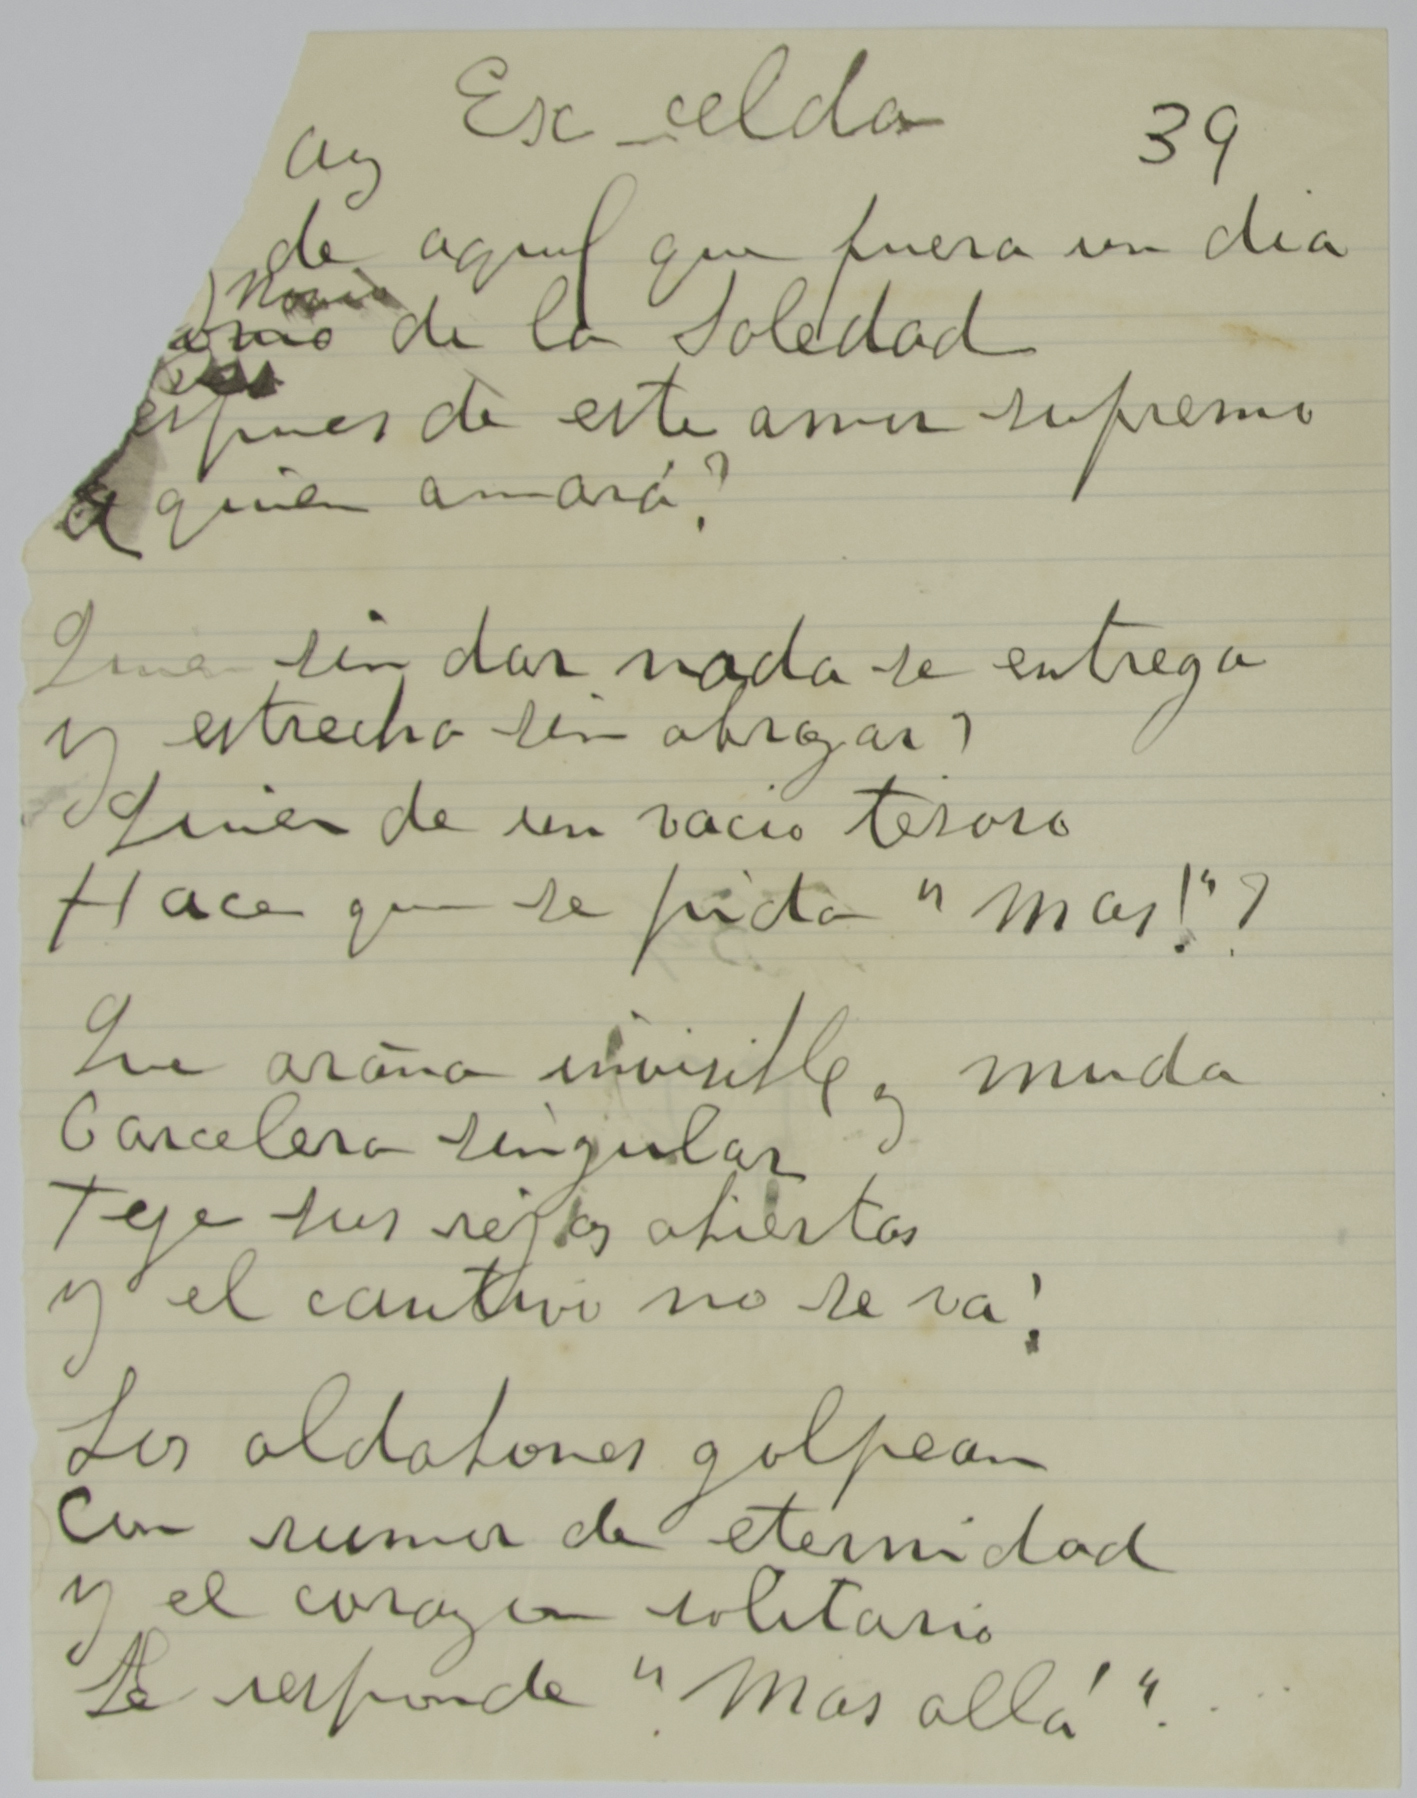 Ex-celda
39
Ay
de aquel que fuera un dia
Novio
de la Soledad
espues de este amor supremo
A quien amará?
Quien sin dar nada se entrega
y estrecha sin abrazar?
Quien de un vacio tesoro
Hace que se pida "Mas!"?
Que araña invisible y muda
Carcelera singular
Teje sus rejas abiertas
y el cautivo no se va!
Los aldabones golpean
Con rumor de eternidad
y el corazon solitario
Le responde "Mas allá"...